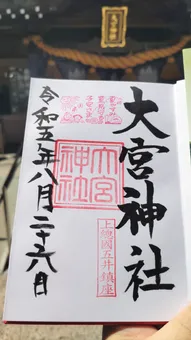 大宮神社
上總國五井鎮座
大宮
神社
令和五年八月二十六日